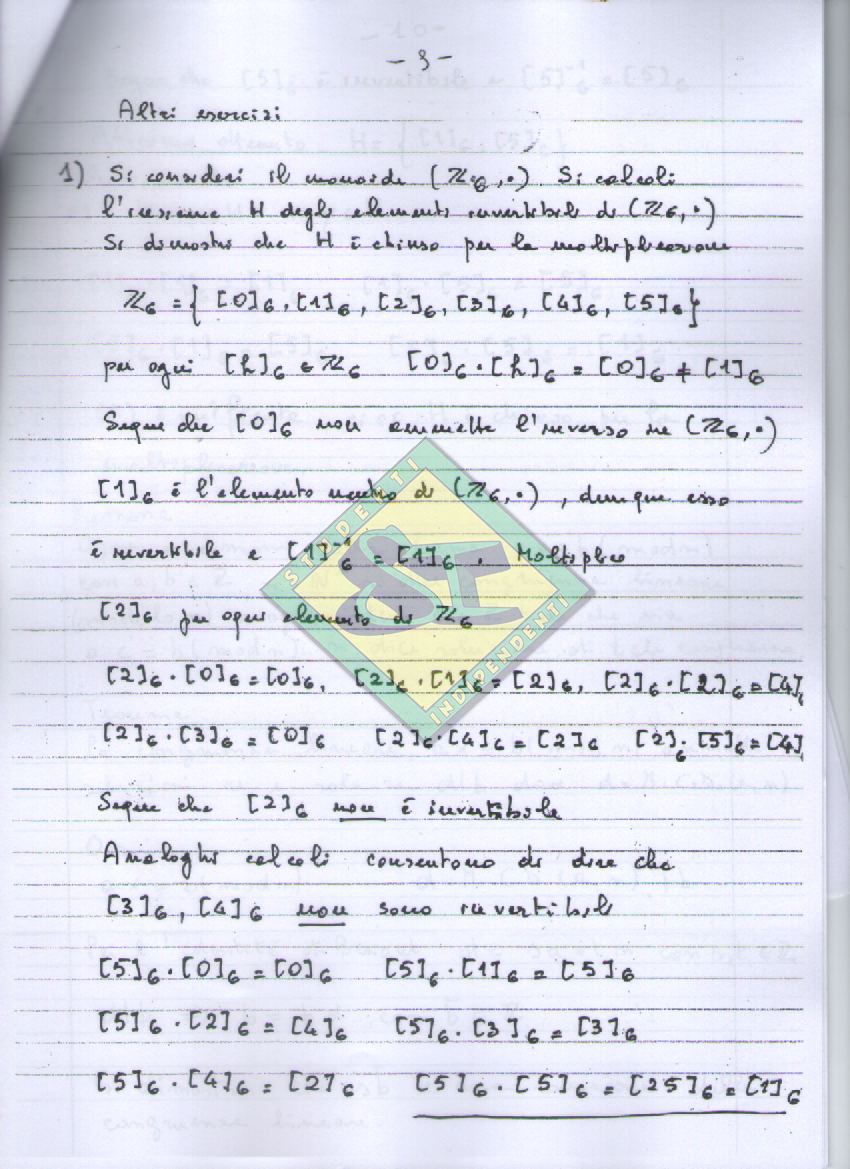 - 9 -
Altri esercizi
1) Si consideri il monoide (ℤ6, ·). Si calcoli
l'insieme H degli elementi invertibili di (ℤ6, ·)
Si dimostri che H è chiuso per la moltiplicazione
ℤ6 = { [0]6, [1]6, [2]6, [3]6, [4]6, [5]6 }
per ogni [h]6 ∈ ℤ6 [0]6 · [h]6 = [0]6 ≠ [1]6
Segue che [0]6 non ammette l'inverso in (ℤ6, ·)
[1]6 è l'elemento neutro di (ℤ6, ·), dunque esso
è invertibile e [1]6⁻¹ = [1]6. Moltiplico
[2]6 per ogni elemento di ℤ6
[2]6 · [0]6 = [0]6, [2]6 · [1]6 = [2]6, [2]6 · [2]6 = [4]6
[2]6 · [3]6 = [0]6 [2]6 · [4]6 = [2]6 [2]6 · [5]6 = [4]
Segue che [2]6 non è invertibile
Analoghi calcoli consentono di dire che
[3]6, [4]6 non sono invertibili
[5]6 · [0]6 = [0]6 [5]6 · [1]6 = [5]6
[5]6 · [2]6 = [4]6 [5]6 · [3]6 = [3]6
[5]6 · [4]6 = [2]6 [5]6 · [5]6 = [25]6 = [1]6
STUDENTI
SI
INDIPENDENTI